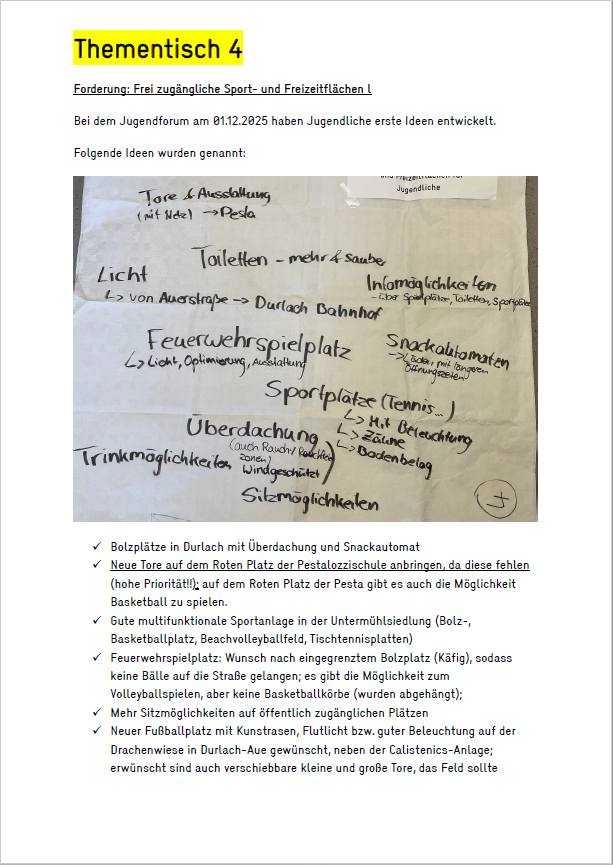 Thementisch 4
Forderung: Frei zugängliche Sport- und Freizeitflächen l
Bei dem Jugendforum am 01.12.2025 haben Jugendliche erste Ideen entwickelt.
Folgende Ideen wurden genannt:
und Freizeitflächen für
Jugendliche
Tore & Ausstattung
(mit Netz) → Pesta
Toiletten - mehr & sauber
Licht
↳ von Auerstraße → Durlach Bahnhof
Infomöglichkeiten
- über Spielplätze, Toiletten, Sportplätze
Feuerwehrspielplatz
↳ Licht, Optimierung, Ausstattung
Snackautomaten
→ Läden mit längeren
Öffnungszeiten
Sportplätze (Tennis...)
↳ Mit Beleuchtung
↳ Zäune
↳ Bodenbelag
Überdachung
(auch Rauch-/
zonen)
Windgeschützt
Trinkmöglichkeiten
Sitzmöglichkeiten
✓ Bolzplätze in Durlach mit Überdachung und Snackautomat
✓ Neue Tore auf dem Roten Platz der Pestalozzischule anbringen, da diese fehlen
(hohe Priorität!!): auf dem Roten Platz der Pesta gibt es auch die Möglichkeit
Basketball zu spielen.
✓ Gute multifunktionale Sportanlage in der Untermühlsiedlung (Bolz-,
Basketballplatz, Beachvolleyballfeld, Tischtennisplatten)
✓ Feuerwehrspielplatz: Wunsch nach eingegrenztem Bolzplatz (Käfig), sodass
keine Bälle auf die Straße gelangen; es gibt die Möglichkeit zum
Volleyballspielen, aber keine Basketballkörbe (wurden abgehängt);
✓ Mehr Sitzmöglichkeiten auf öffentlich zugänglichen Plätzen
✓ Neuer Fußballplatz mit Kunstrasen, Flutlicht bzw. guter Beleuchtung auf der
Drachenwiese in Durlach-Aue gewünscht, neben der Calistenics-Anlage;
erwünscht sind auch verschiebbare kleine und große Tore, das Feld sollte